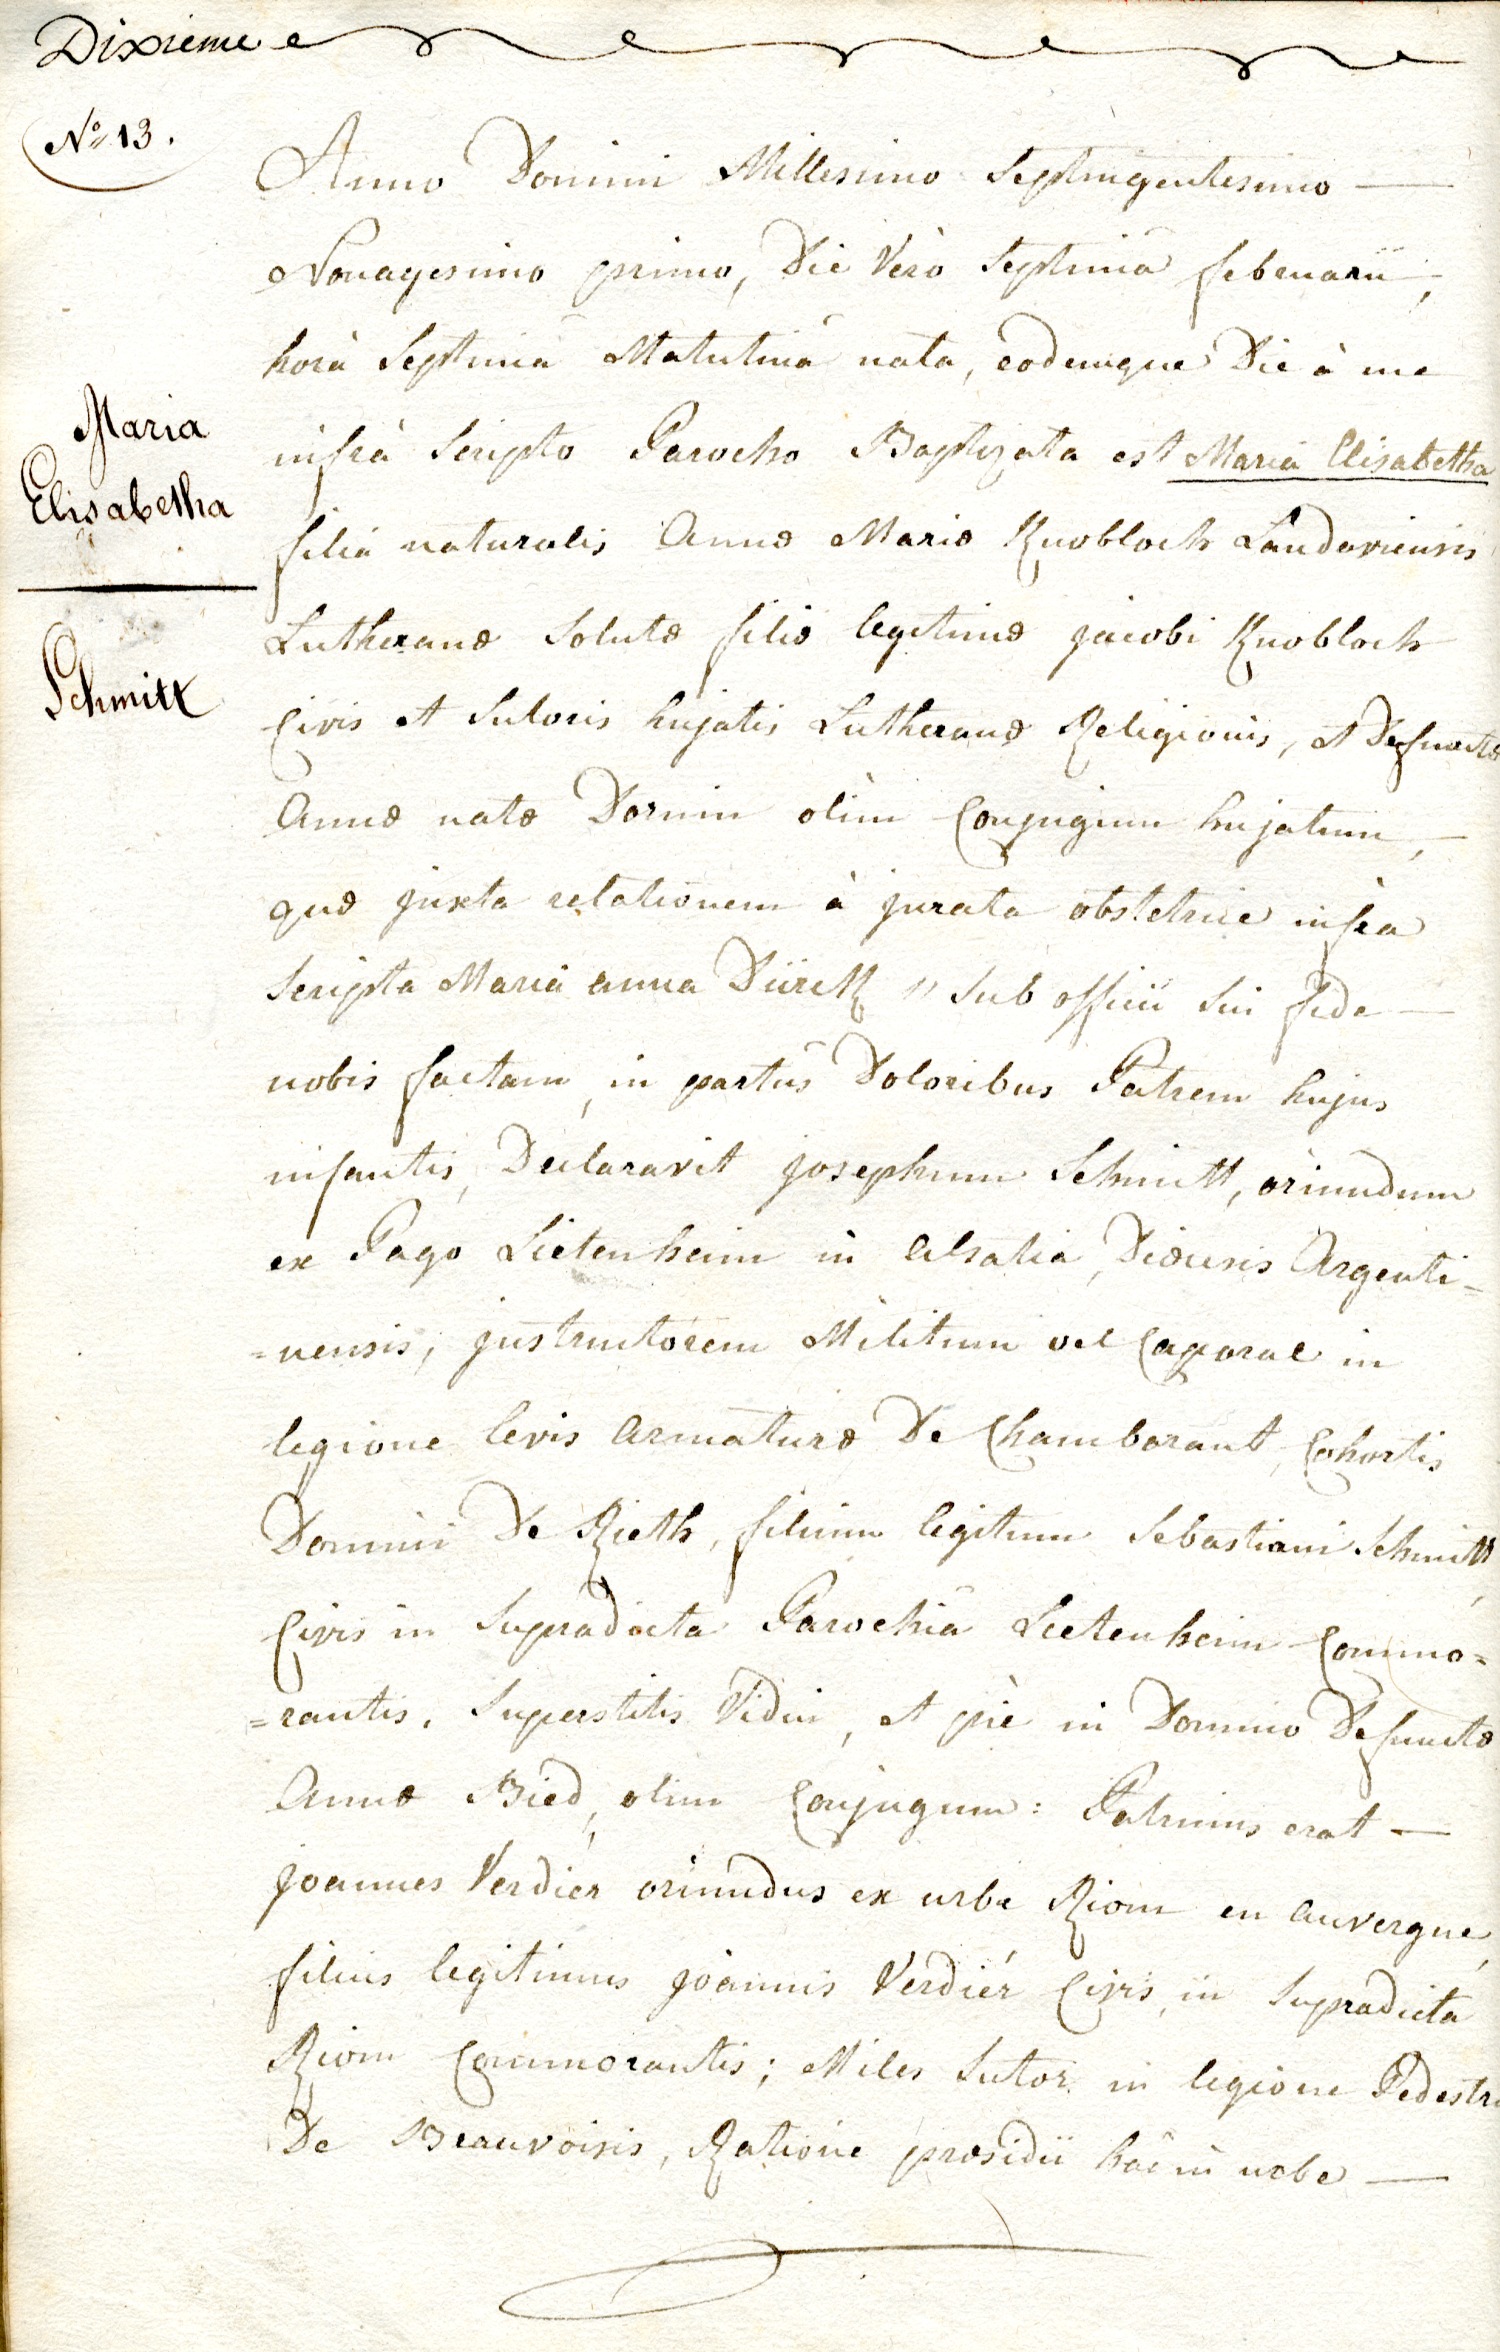 Dixieme
No 13.
Anno Domini Millesimo Septingentesimo —
Nonagesimo primo, Die Verò Septima februarii,
horà Septimâ Matutinâ nata, eodemque Die à me
infrà Scripto Parocho Baptizata est Maria Elisabetha
Maria
Elisabetha
filia naturalis Annæ Mariæ Knobloch Landaviensis
Lutheranæ Solutæ filiæ legitimæ jacobi Knobloch
Schmitt
Civis et Sutoris hujatis Lutheranæ Religionis, et Defunctæ
Annæ natæ Dornin olim Conjugium hujatum, —
quæ juxta relationem à jurata obstetrice infra
Scripta Maria anna Dürck " Sub officii Sui fide —
nobis factam, in partûs Doloribus Patrem hujus
infantis, Declaravit josephum Schmitt, oriundum
ex Pago Lietenheim in alsatia, Diœcesis Argenti=
=nensis, justructorem Militum vel Caporal in
legione levis armaturæ De Chamborant, Cohortis
Domini De Rieth, filium legitimum Sebastiani Schmitt
Civis in Supradicta Parochiâ Lietenheim Commo=
=rantis, Superstitis Vidui, et piè in Domino Defunctæ
Annæ Bied, olim Conjugum: Patrinus erat —
joannes Verdier oriundus ex urbe Riom en auvergne,
filius legitimus joannis Verdiér Civis, in Supradicta
Riom Commorantis; Miles Sutor in legione Pedestri
De Beauvoisis, Ratione præsidii hâc in urbe —